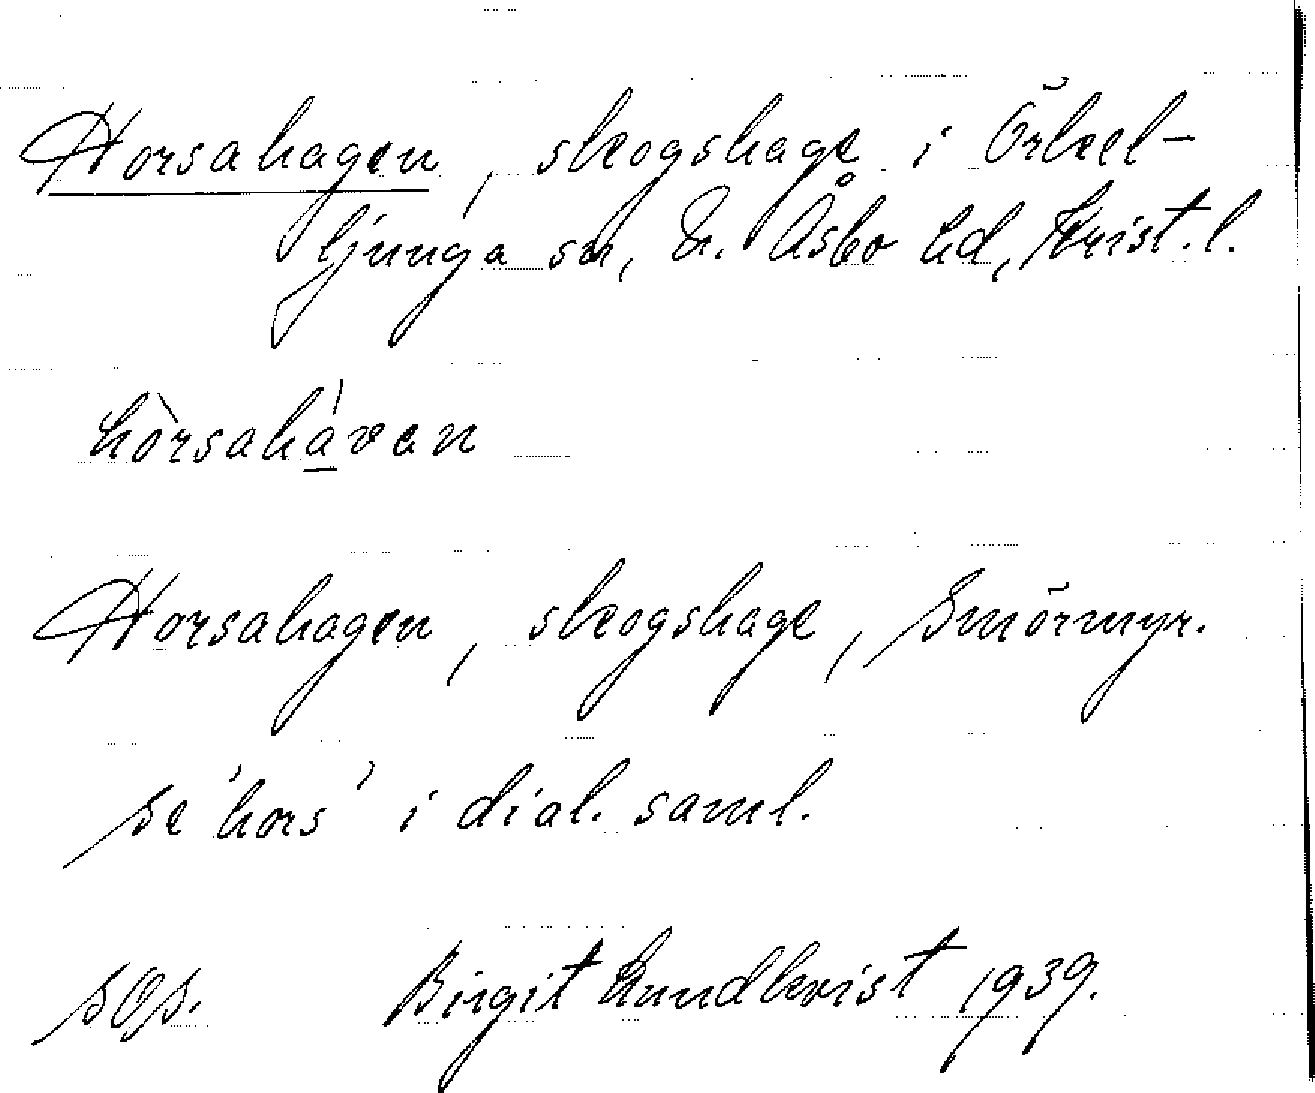 Horsahagen, skogshage i Örkel-
ljunga sn, N. Åsbo hd, Krist. l.
hòrsahàvan
Horsahagen, skogshage, Smörmyr.
se 'hors' i dial. saml.
Birgit Lundkvist 1939.